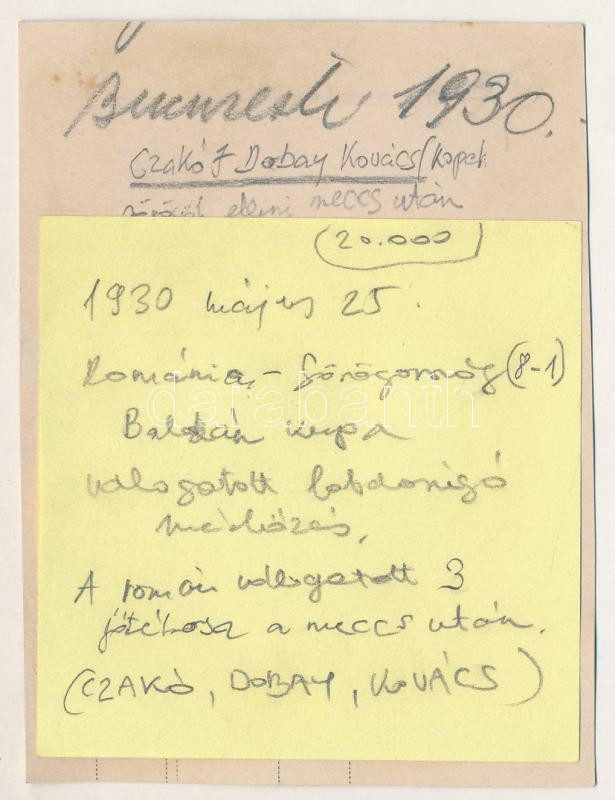 Bucuresti 1930.
Czakó Dobay Kovács
elleni meccs után
(20.000)
1930 május 25.
Románia - Görögország (8-1)
Balkán kupa
válogatott labdarúgó
mérkőzés,
A román válogatott 3
játékosa a meccs után.
(CZAKÓ, DOBAY, KOVÁCS)
darabanth